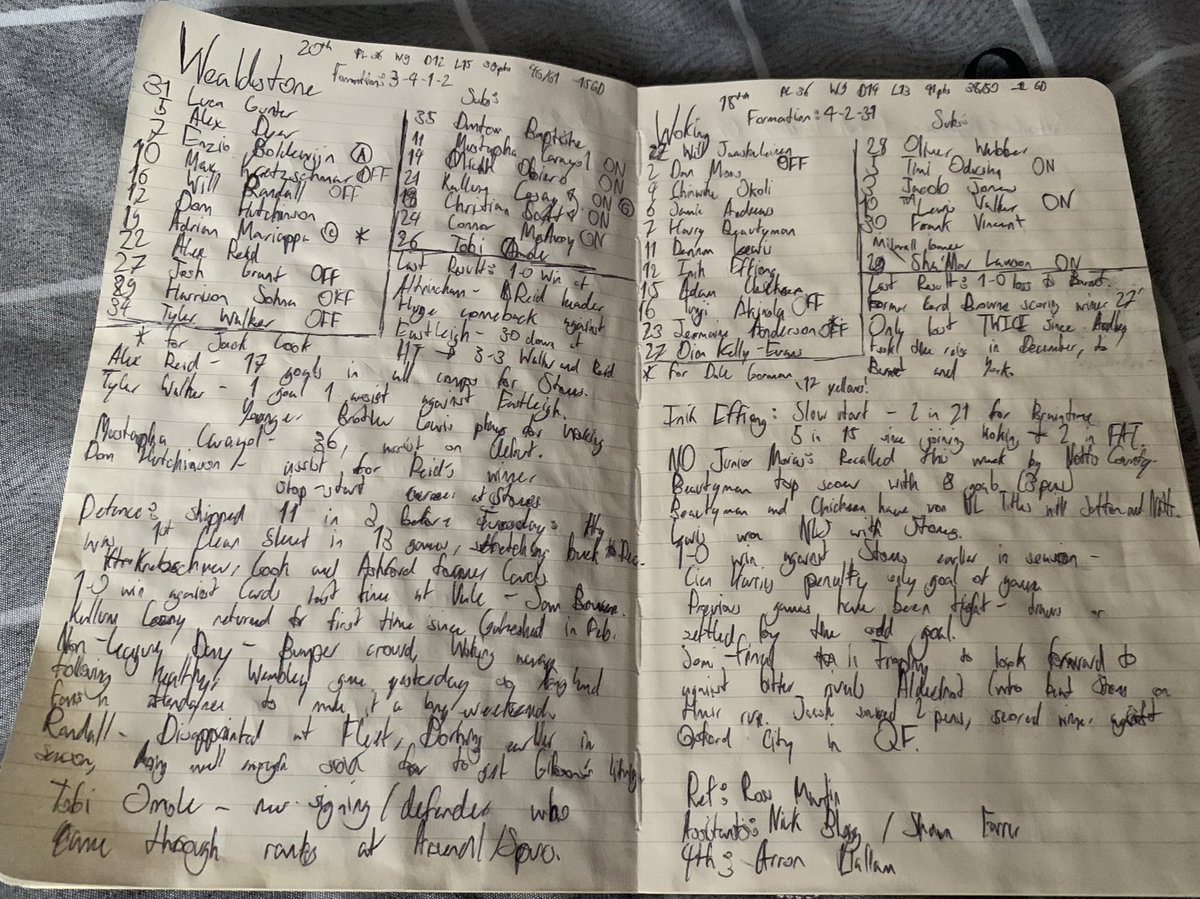 Wealdstone 20th PL 36 W9 D12 L15 39pts 46/61 -15GD
Formation: 3-4-1-2
Subs:
31 Luca Gunter
5 Alex Dyer
7 Enzio Boldewijn (A)
10 Max Kretzschmar OFF
16 Will Randall OFF
12 Dom Hutchinson
19 Adrian Mariappa (C) *
22 Alex Reid
27 Josh Grant OFF
29 Harrison Sohna OFF
34 Tyler Walker OFF
35 Dantaye Baptiste
11 Mostapha Carayol ON
14 Micah Obiero ON
21 Kallum Cesay ON
18 Christian ON (G)
24 Connor McAvoy ON
26 Tobi Omole
* for Jack Cook
Last Result: 1-0 win at
Altrincham - Reid header
Huge comeback against
Eastleigh - 3-0 down at
HT → 3-3 Walker and Reid
Alex Reid - 17 goals in all comps for Stones.
Tyler Walker - 1 goal 1 assist against Eastleigh.
Younger Brother Lewis plays for Woking
Mostapha Carayol - 36, assist on debut.
Dom Hutchinson - assist for Reid's winner
stop-start career at Stones
Defence: shipped 11 in 3 before Tuesday's Alty
win, 1st Clean Sheet in 13 games, stretching back to Dec.
Kretzschmar, Cook and Ashford former Cards
1-0 win against Cards last time at Vale - Sam Bowen.
Kallum Cesay returned for first time since Gateshead in Feb.
Non-League Day - Bumper crowd, Woking
following healthy, Wembley game yesterday so England
fans in attendance to make it a long weekend.
Randall - Disappointed at Fleet, Dorking earlier in
season,
Tobi Omole - new signing/defender who
came through ranks at Arsenal/Spurs.
Woking 18th PL 36 W9 D14 L13 41pts GD
Formation: 4-2-31
Subs:
22 Will Jaaskelainen
2 Dan Moss OFF
4 Chinwike Okoli
6 Jamie Andrews
7 Harry Beautyman
11 Dennon Lewis
12 Inih Effiong
15 Adam Chicksen
16 Tunji Akinola OFF
23 Jermaine Anderson OFF *
27 Dion Kelly-Evans
28 Oliver Webber
5 Timi Odusina ON
Jacob Jones
Lewis Walker ON
30 Frank Vincent
Millwall loanee
29 Sha'Mar Lawson ON
* For Dale Gorman
12 yellows!
Last Result: 1-0 loss to Barnet.
Former Card Browne scoring winner 27'
Only lost TWICE since Ardley
took the reins in December, to
Barnet and York.
Inih Effiong: Slow start - 2 in 21 for Braintree
5 in 15 since joining Woking + 2 in FAT.
NO Junior Morias: Recalled this week by Notts County.
Beautyman top scorer with 8 goals (3 pens)
Beautyman and Chicksen have won NL Titles with Sutton and Notts.
Lewis won NLS with Stones.
1-0 win against Stones earlier in season -
Cian Harries penalty only goal of game
Previous games have been tight - draws or
settled by the odd goal.
Semi-final in Trophy to look forward to
against bitter rivals Aldershot (who beat Stones on
their run. Jaask saved 2 pens, scored winner against
Oxford City in QF.
Ref: Ross Martin
Assistants: Nick / Shawn
4th: Arron Hallam